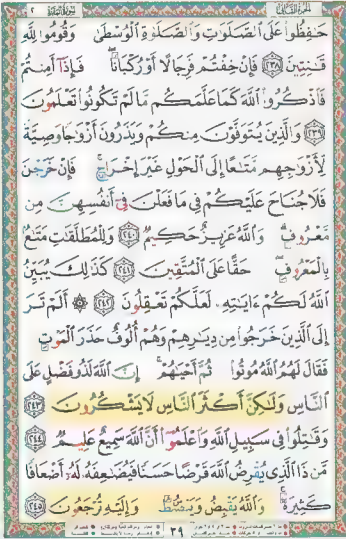 ٢ سورة البقرة الجزء الثاني
حَٰفِظُوا۟ عَلَى ٱلصَّلَوَٰتِ وَٱلصَّلَوٰةِ ٱلْوُسْطَىٰ وَقُومُوا۟ لِلَّهِ
قَٰنِتِينَ ﴿٢٣٨﴾ فَإِنْ خِفْتُمْ فَرِجَالًا أَوْ رُكْبَانًا ۖ فَإِذَآ أَمِنتُمْ
فَٱذْكُرُوا۟ ٱللَّهَ كَمَا عَلَّمَكُم مَّا لَمْ تَكُونُوا۟ تَعْلَمُونَ
﴿٢٣٩﴾ وَٱلَّذِينَ يُتَوَفَّوْنَ مِنكُمْ وَيَذَرُونَ أَزْوَٰجًا وَصِيَّةً
لِّأَزْوَٰجِهِم مَّتَٰعًا إِلَى ٱلْحَوْلِ غَيْرَ إِخْرَاجٍ ۚ فَإِنْ خَرَجْنَ
فَلَا جُنَاحَ عَلَيْكُمْ فِى مَا فَعَلْنَ فِىٓ أَنفُسِهِنَّ مِن
مَّعْرُوفٍ ۗ وَٱللَّهُ عَزِيزٌ حَكِيمٌ ﴿٢٤٠﴾ وَلِلْمُطَلَّقَٰتِ مَتَٰعٌۢ
بِٱلْمَعْرُوفِ ۖ حَقًّا عَلَى ٱلْمُتَّقِينَ ﴿٢٤١﴾ كَذَٰلِكَ يُبَيِّنُ
ٱللَّهُ لَكُمْ ءَايَٰتِهِۦ لَعَلَّكُمْ تَعْقِلُونَ ﴿٢٤٢﴾ ۞ أَلَمْ تَرَ
إِلَى ٱلَّذِينَ خَرَجُوا۟ مِن دِيَٰرِهِمْ وَهُمْ أُلُوفٌ حَذَرَ ٱلْمَوْتِ
فَقَالَ لَهُمُ ٱللَّهُ مُوتُوا۟ ثُمَّ أَحْيَٰهُمْ ۚ إِنَّ ٱللَّهَ لَذُو فَضْلٍ عَلَى
ٱلنَّاسِ وَلَٰكِنَّ أَكْثَرَ ٱلنَّاسِ لَا يَشْكُرُونَ ﴿٢٤٣﴾
وَقَٰتِلُوا۟ فِى سَبِيلِ ٱللَّهِ وَٱعْلَمُوٓا۟ أَنَّ ٱللَّهَ سَمِيعٌ عَلِيمٌ ﴿٢٤٤﴾
مَّن ذَا ٱلَّذِى يُقْرِضُ ٱللَّهَ قَرْضًا حَسَنًا فَيُضَٰعِفَهُۥ لَهُۥٓ أَضْعَافًا
كَثِيرَةً ۚ وَٱللَّهُ يَقْبِضُ وَيَبْصُۜطُ وَإِلَيْهِ تُرْجَعُونَ ﴿٢٤٥﴾
٣٩